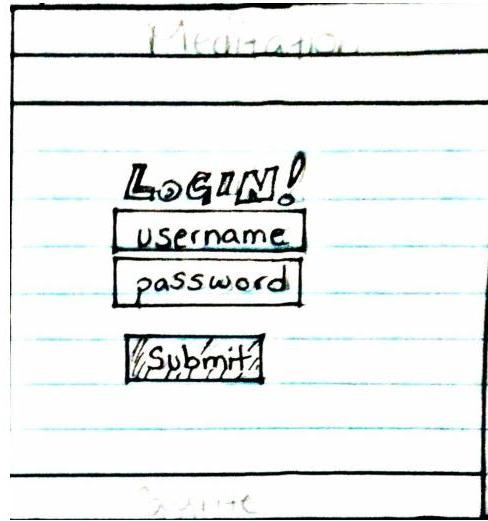 Meditation
LOGIN!
username
password
Submit